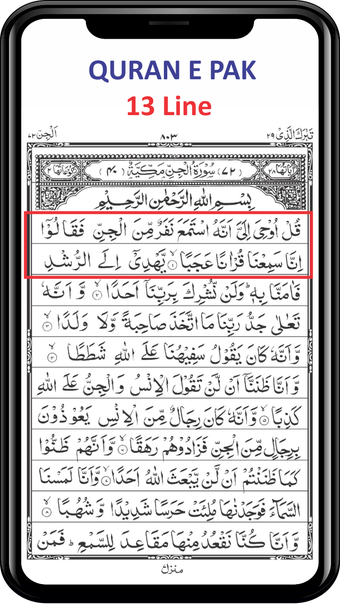 QURAN E PAK
13 Line
تَبٰرَكَ الَّذِیْ ۲۹ ۸۰۳ اَلْجِنّ ۷۲
اٰیَاتُهَا ۲۸ (۷۲) سُوْرَةُ الْجِنِّ مَكِّیَّةٌ (۴۰) رُكُوْعَاتُهَا ۲
بِسْمِ اللّٰهِ الرَّحْمٰنِ الرَّحِیْمِ
قُلْ اُوْحِیَ اِلَیَّ اَنَّهُ اسْتَمَعَ نَفَرٌ مِّنَ الْجِنِّ فَقَالُوْۤا
اِنَّا سَمِعْنَا قُرْاٰنًا عَجَبًا ۙ۱ یَّهْدِیْۤ اِلَی الرُّشْدِ
فَاٰمَنَّا بِهٖ ؕ وَلَنْ نُّشْرِكَ بِرَبِّنَاۤ اَحَدًا ۙ۲ وَّ اَنَّهٗ
تَعٰلٰی جَدُّ رَبِّنَا مَا اتَّخَذَ صَاحِبَةً وَّلَا وَلَدًا ۙ۳
وَّاَنَّهٗ كَانَ یَقُوْلُ سَفِیْهُنَا عَلَی اللّٰهِ شَطَطًا ۙ۴
وَّاَنَّا ظَنَنَّاۤ اَنْ لَّنْ تَقُوْلَ الْاِنْسُ وَ الْجِنُّ عَلَی اللّٰهِ
كَذِبًا ۙ۵ وَّاَنَّهٗ كَانَ رِجَالٌ مِّنَ الْاِنْسِ یَعُوْذُوْنَ
بِرِجَالٍ مِّنَ الْجِنِّ فَزَادُوْهُمْ رَهَقًا ۙ۶ وَّاَنَّهُمْ ظَنُّوْا
كَمَا ظَنَنْتُمْ اَنْ لَّنْ یَّبْعَثَ اللّٰهُ اَحَدًا ۙ۷ وَّاَنَّا لَمَسْنَا
السَّمَآءَ فَوَجَدْنٰهَا مُلِئَتْ حَرَسًا شَدِیْدًا وَّ شُهُبًا ۙ۸
وَّاَنَّا كُنَّا نَقْعُدُ مِنْهَا مَقَاعِدَ لِلسَّمْعِ ؕ فَمَنْ
منزل